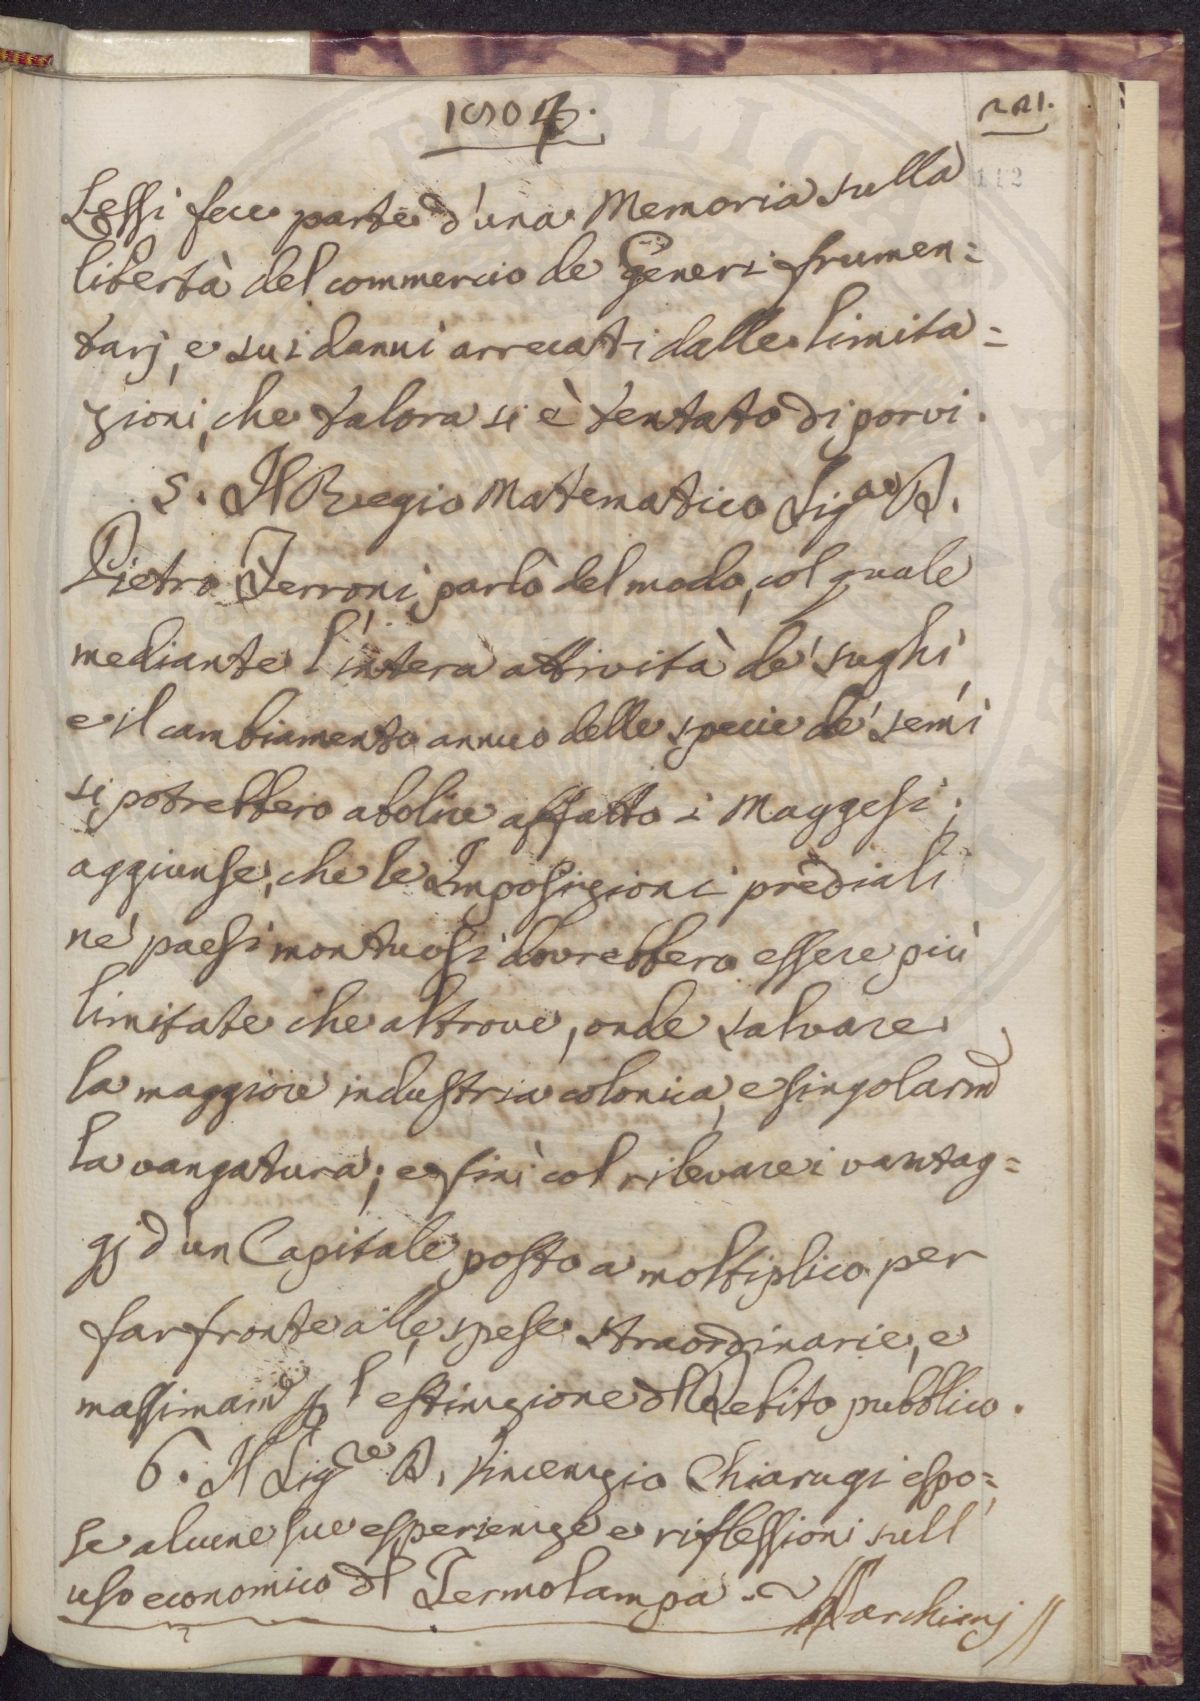 1804.
221.
112
Lessi fece parte d'una Memoria sulla
libertà del commercio de Generi frumen=
tarj, e sui danni arrecati dalle limita=
zioni, che talora si è tentato di porvi.
5. Il Regio Matematico Sig.re D.
Pietro Ferroni, parlò del modo, col quale
mediante l'intera attività de' sughi,
e il cambiamento annuo delle specie de' semi
si potrebbero abolire affatto i Maggesi;
aggiunse, che le Imposizioni prediali
ne' paesi montuosi dovrebbero essere più
limitate che altrove, onde salvare
la maggiore industria colonica, e singolarmd
la vangatura; e finì col rilevare i vantag=
gj d'un Capitale posto a moltiplico per
far fronte alle spese straordinarie, e
massimamd p l'estinzione dl Debito pubblico.
6. Il Sig.re D. Vincenzio Chiarugi espo=
se alcune sue esperienze e riflessioni sull'
uso economico dl Termolampa.
Sarchianj